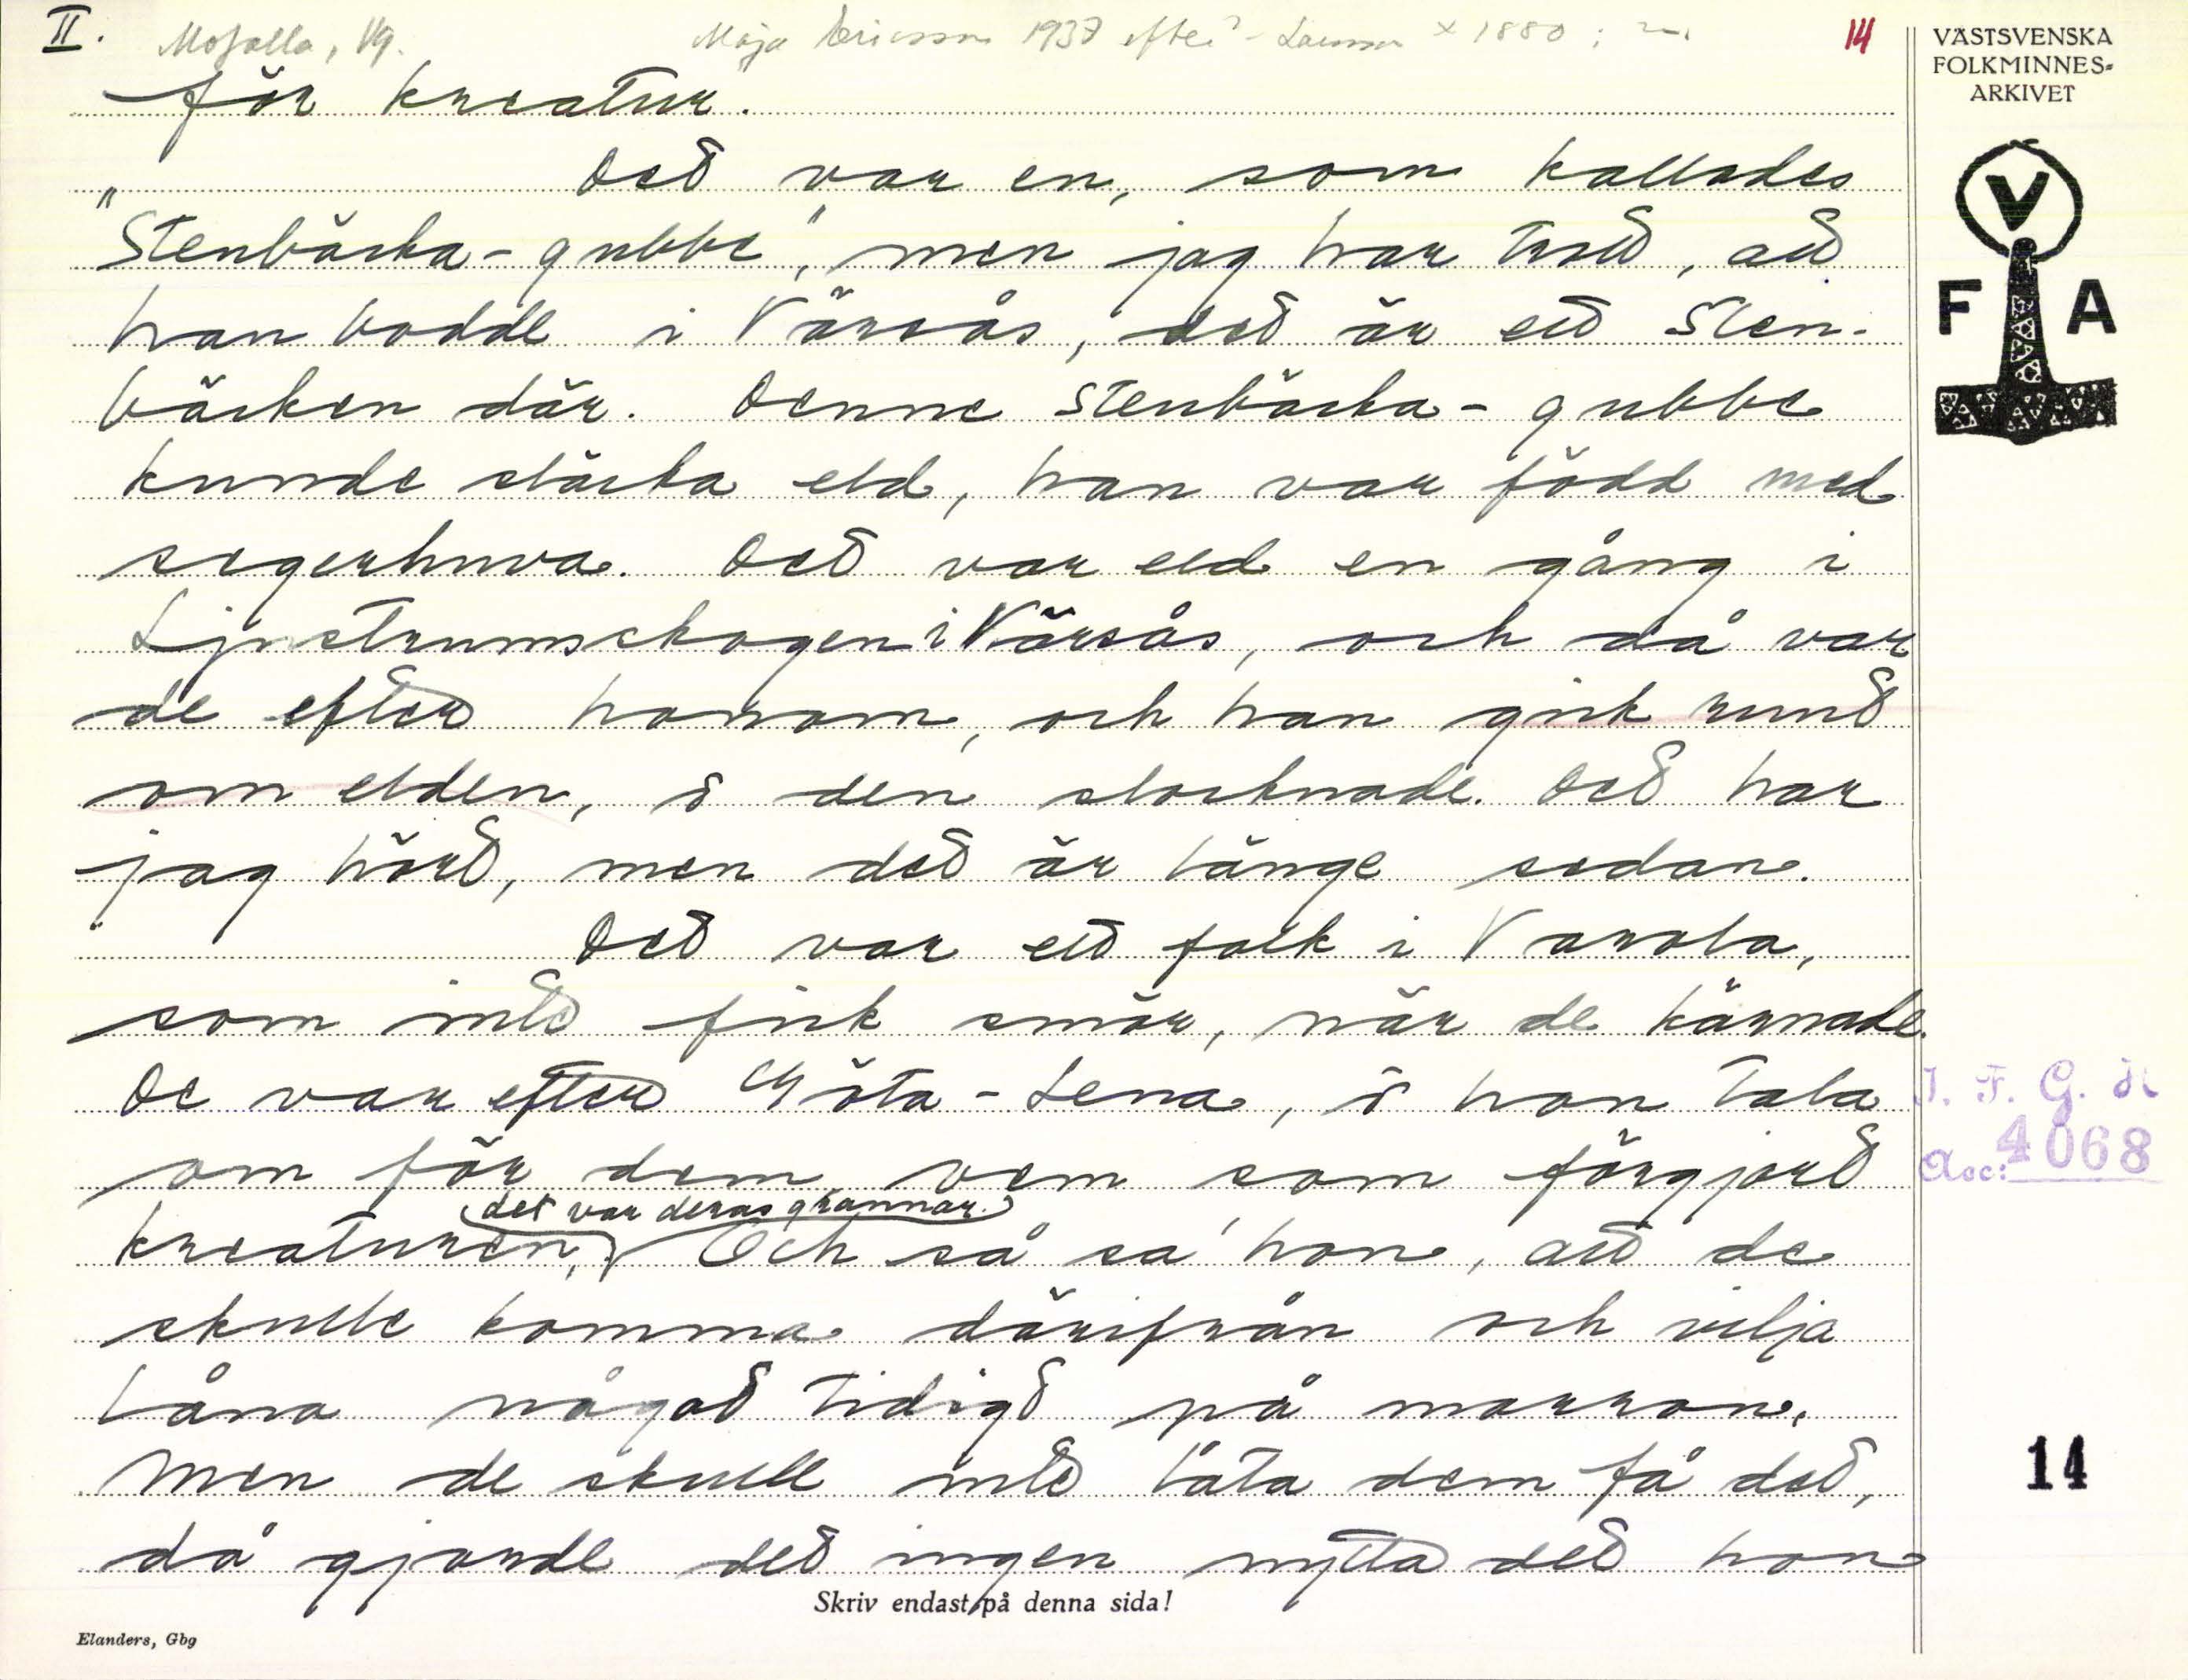 II. Mofalla, Vg. Maja Ericsson 1937 efter Larsson * 1880 14
VÄSTSVENSKA
FOLKMINNES-
ARKIVET
för kreatur.
Det var en, som kallades
"Stenbäcka-gubbe", men jag har trott, att
han bodde i Värsås, det är ett Sten-
bäcken där. Denne Stenbäcka-gubbe
kunde släcka eld, han var född med
segerhuva. Det var eld en gång i
Ljustrumskogen i Värsås, och då var
de efter honom, och han gick runt
om elden, o den slocknade. Det har
jag hört, men det är länge sedan.
Det var ett folk i Varola,
som inte fick smör, när de kärnade.
De var efter Göta-Lena, o hon tala
om för dem vem som förgjort
kreaturen, det var deras grannar. Och så sa' hon, att de
skulle komma därifrån och vilja
låna något tidigt på morron.
Men de skulle inte låta dem få det,
då gjorde det ingen nytta det hon
V
F A
I. F. G. H.
Acc: 4068
14
Skriv endast på denna sida!
Elanders, Gbg